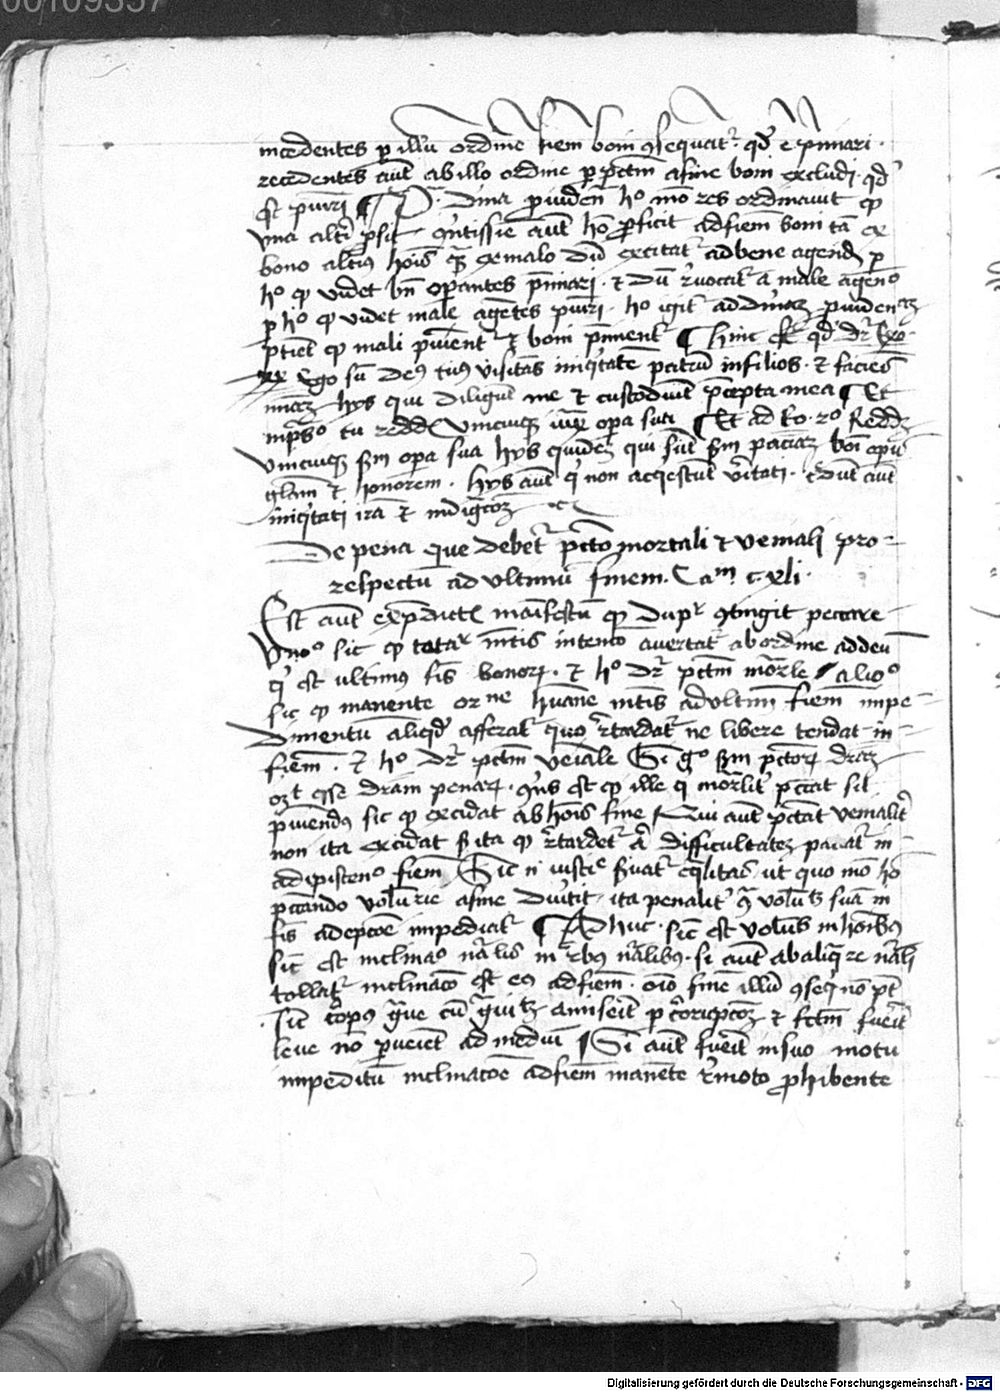 00109337
incedentes p illū ordinē finem boni ꝯsequāt᷑ · qd̄ ē p̄miari ·
recedentes aūt ab illo ordine p pctm̄ a fine boni excludi · qd̄
est puniri ¶ diuīa ꝓuidēn hº mō res ordinauit ꝙ
vna alt̄i ꝓsit hō ꝓficit ad finem boni tā ex
bono alt̄iꝰ hoīs ꝙ̄ ex malo dū excitat᷑ ad bene agend p
hº ꝙ videt bn̄ oꝑantes p̄miari · ⁊ dū reuocat᷑ a male agenº
p hº ꝙ videt male agētes puīri · hº igit᷑ ad diuinaꝫ ꝓuidenaꝫ
ptiet ꝙ mali puient᷑ ⁊ boni p̄mient᷑ ¶ hinc qd̄ dr̄ Exo
xx Ego sū deꝰ tuꝰ visitās iniq̇tatē patrū in filios · ⁊ facies
miaꝫ hys qui diligūt me ⁊ custodiūt p̄cepta mea ¶ Et
in psº tu reddes vnicuiqꝫ iuxͣ opa sua ¶ Et ad Ro · 2º Reddꝫ
vnicuiqꝫ scd̄m opa sua hys quideꝫ qui sūt scd̄m paciaꝫ boī opis
gl̄iam ⁊ honorem · hys aūt q̇ non acq̇escūt v̄itati · cdūt aūt
iniq̇tati ira ⁊ indigcōꝫ etc
De pena que debet᷑ pctō mortali ⁊ veniali pro-
respectū ad vltimū finem · Cam c·xli ·
Est aūt ex p̄dictis maīfestū ꝙ dupr̄ ꝯtingit peccare
Vnoº sic ꝙ totar mētis intentō auertat᷑ ab ordine ad deū
q̇ est ultimus fīs bonoꝝ · ⁊ hº dr̄ pctm̄ mor̄le / alioº
sic ꝙ manente orne hūane mētis ad vltim̄ finem impe-
dimentū aliqd̄ afferat᷑ quo r̄tardat᷑ ne libere tendat in
finem · ⁊ hº dr̄ pctm̄ veniale Si gº scd̄m pctōꝝ driaꝫ
oꝫt esse driam penaꝝ · ꝯn̄s est ꝙ ille q̇ mor̄lit̄ pccat sit
puniendꝰ sic ꝙ excidat ab hoīs fine / Qui aūt pctat venialit̄
non ita excidat sꝫ ita ꝙ r̄tardet᷑ ā difficultateꝫ paciat᷑ in
adipiscenº finem / Sic n̄ iusticͤ suat᷑ eq̄litas · ut quo mō hō
pccando volūrie a fine diu̇tit᷑ · ita penalit̄ ꝯͣ volūtꝫ suā in
fīs adepcōe impediat᷑ ¶ Adhuc · sic est volūs in hoībꝰ
sic est inclinaº nat̄lis in rebꝰ nāt̄libꝰ · si aūt ab aliq̄ re nāt̄li
tollat᷑ inclinacō eiꝰ ad finem · oīo finē illū ꝯseq nō pt̄
· sic corpꝰ gͣue cū gͣuitꝫ amiseīt p corrupcōꝫ ⁊ fctm̄ fuerīt
leue nō pueniet ad mediū ¶ Si aūt fuerīt in suo motu
impeditū inclinacōe ad finem manēte r̄moto ꝓhibente
Digitalisierung gefördert durch die Deutsche Forschungsgemeinschaft · DFG